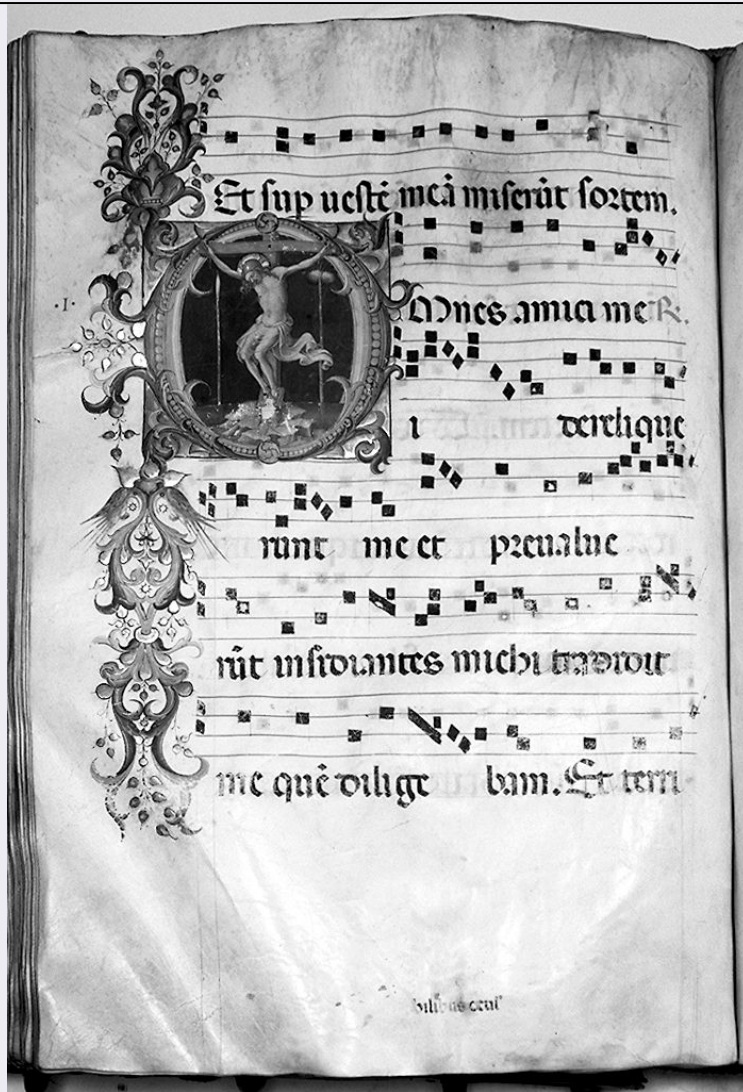 Et sup uestē meā miserūt sortem.
·I·
Omnes amici me R.
i derelique
runt me et preualue
rūt insidiantes michi tradidit
me quē dilige bam. Et terri
bilibus ocul'